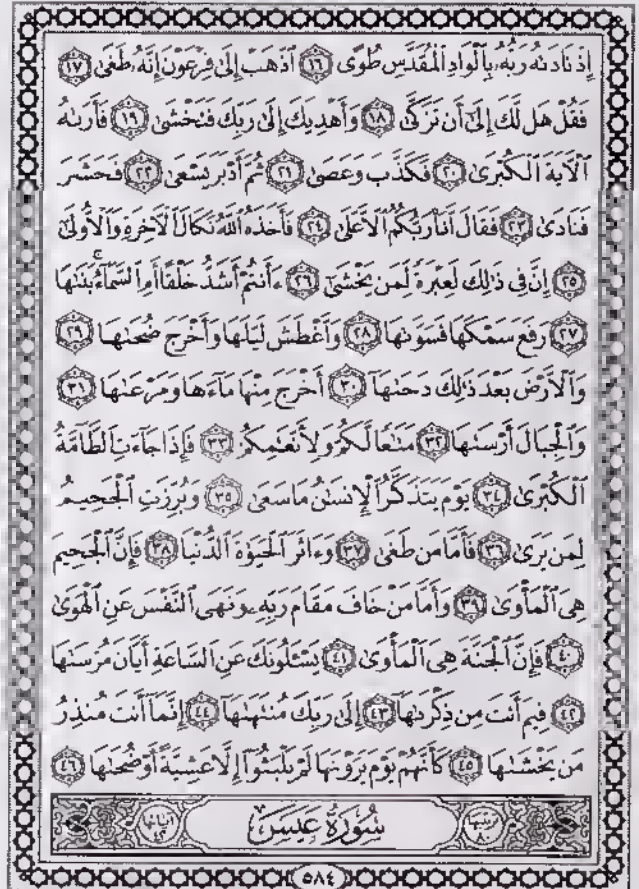 إِذْ نَادَىٰهُ رَبُّهُۥ بِٱلْوَادِ ٱلْمُقَدَّسِ طُوًى ١٦ ٱذْهَبْ إِلَىٰ فِرْعَوْنَ إِنَّهُۥ طَغَىٰ ١٧
فَقُلْ هَل لَّكَ إِلَىٰٓ أَن تَزَكَّىٰ ١٨ وَأَهْدِيَكَ إِلَىٰ رَبِّكَ فَتَخْشَىٰ ١٩ فَأَرَىٰهُ
ٱلْـَٔايَةَ ٱلْكُبْرَىٰ ٢٠ فَكَذَّبَ وَعَصَىٰ ٢١ ثُمَّ أَدْبَرَ يَسْعَىٰ ٢٢ فَحَشَرَ
فَنَادَىٰ ٢٣ فَقَالَ أَنَا۠ رَبُّكُمُ ٱلْأَعْلَىٰ ٢٤ فَأَخَذَهُ ٱللَّهُ نَكَالَ ٱلْـَٔاخِرَةِ وَٱلْأُولَىٰٓ
٢٥ إِنَّ فِى ذَٰلِكَ لَعِبْرَةً لِّمَن يَخْشَىٰٓ ٢٦ ءَأَنتُمْ أَشَدُّ خَلْقًا أَمِ ٱلسَّمَآءُ ۚ بَنَىٰهَا
٢٧ رَفَعَ سَمْكَهَا فَسَوَّىٰهَا ٢٨ وَأَغْطَشَ لَيْلَهَا وَأَخْرَجَ ضُحَىٰهَا ٢٩
وَٱلْأَرْضَ بَعْدَ ذَٰلِكَ دَحَىٰهَآ ٣٠ أَخْرَجَ مِنْهَا مَآءَهَا وَمَرْعَىٰهَا ٣١
وَٱلْجِبَالَ أَرْسَىٰهَا ٣٢ مَتَٰعًا لَّكُمْ وَلِأَنْعَٰمِكُمْ ٣٣ فَإِذَا جَآءَتِ ٱلطَّآمَّةُ
ٱلْكُبْرَىٰ ٣٤ يَوْمَ يَتَذَكَّرُ ٱلْإِنسَٰنُ مَا سَعَىٰ ٣٥ وَبُرِّزَتِ ٱلْجَحِيمُ
لِمَن يَرَىٰ ٣٦ فَأَمَّا مَن طَغَىٰ ٣٧ وَءَاثَرَ ٱلْحَيَوٰةَ ٱلدُّنْيَا ٣٨ فَإِنَّ ٱلْجَحِيمَ
هِىَ ٱلْمَأْوَىٰ ٣٩ وَأَمَّا مَنْ خَافَ مَقَامَ رَبِّهِۦ وَنَهَى ٱلنَّفْسَ عَنِ ٱلْهَوَىٰ
٤٠ فَإِنَّ ٱلْجَنَّةَ هِىَ ٱلْمَأْوَىٰ ٤١ يَسْـَٔلُونَكَ عَنِ ٱلسَّاعَةِ أَيَّانَ مُرْسَىٰهَا
٤٢ فِيمَ أَنتَ مِن ذِكْرَىٰهَآ ٤٣ إِلَىٰ رَبِّكَ مُنتَهَىٰهَآ ٤٤ إِنَّمَآ أَنتَ مُنذِرُ
مَن يَخْشَىٰهَا ٤٥ كَأَنَّهُمْ يَوْمَ يَرَوْنَهَا لَمْ يَلْبَثُوٓا۟ إِلَّا عَشِيَّةً أَوْ ضُحَىٰهَا ٤٦
ترتيبها ٨٠ سُورَةُ عَبَسَ آياتها ٤٢
٥٨٤